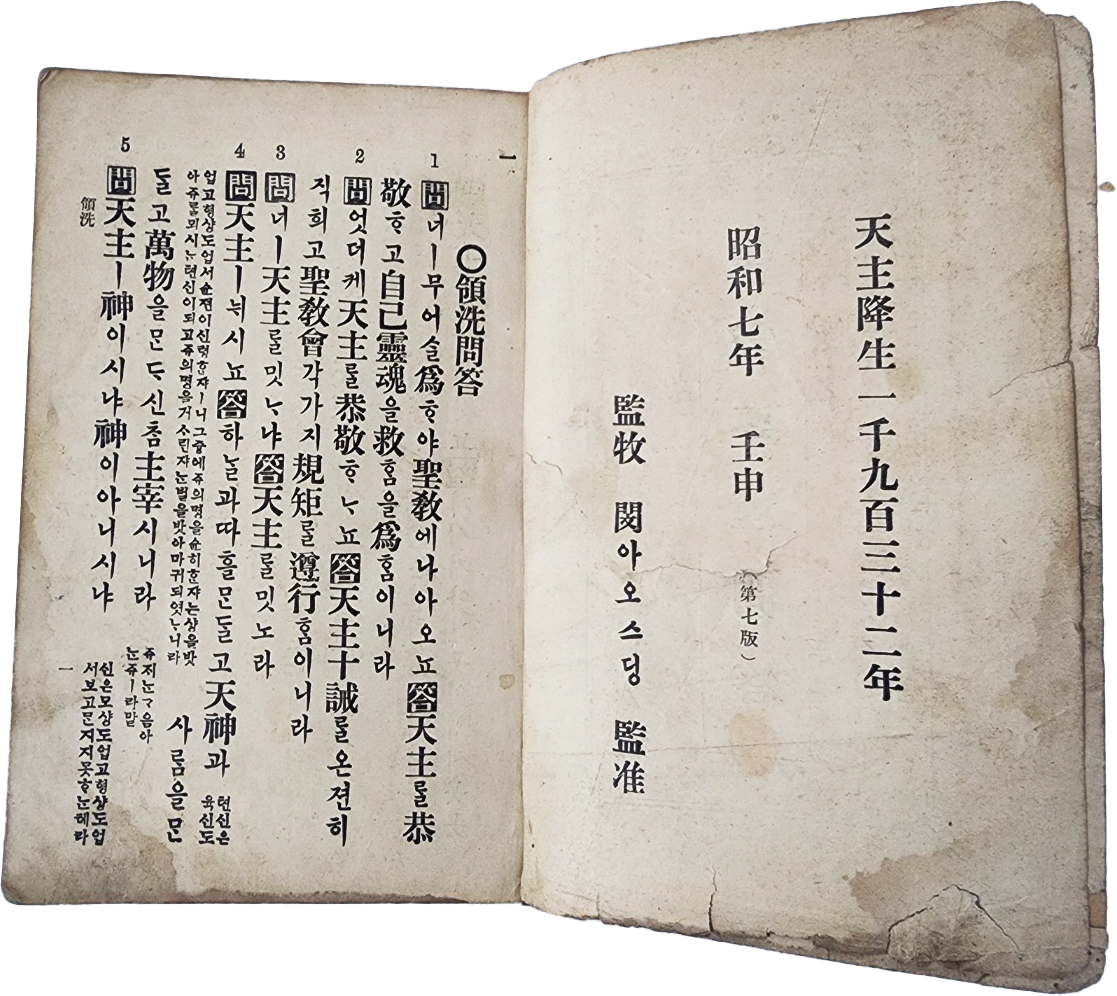 天主降生一千九百三十二年
昭和七年 壬申 (第七版)
監牧 閔아오스딩 監准
一
○領洗問答
1 問너ㅣ무어슬爲ᄒᆞ야聖敎에나아오뇨答天主ᄅᆞᆯ恭
敬ᄒᆞ고自己靈魂을救ᄒᆞᆷ을爲ᄒᆞᆷ이니라
2 問엇더케天主ᄅᆞᆯ恭敬ᄒᆞᄂᆞ뇨答天主十誡ᄅᆞᆯ온젼히
직희고聖敎會각가지規矩ᄅᆞᆯ遵行ᄒᆞᆷ이니라
3 問너ㅣ天主ᄅᆞᆯ밋ᄂᆞ냐答天主ᄅᆞᆯ밋노라
4 問天主ㅣ뉘시뇨答하ᄂᆞᆯ과따흘ᄆᆞᆫᄃᆞᆯ고天神과
텬신은육신도
업고형상도업서슌젼이신령ᄒᆞᆫ쟈ㅣ니그즁에쥬의명을슌히ᄒᆞᆫ쟈는샹을밧
아쥬ᄅᆞᆯ뫼시ᄂᆞᆫ텬신이되고쥬의명을거ᄉᆞ린쟈ᄂᆞᆫ벌을밧아마귀되엿ᄂᆞ니라
사ᄅᆞᆷ을ᄆᆞᆫ
ᄃᆞᆯ고萬物을ᄆᆞᆫᄃᆞ신ᄎᆞᆷ主宰시니라
쥬ᄌᆡᄂᆞᆫᄀᆞ음아
ᄂᆞᆫ쥬ㅣ라말
5 問天主ㅣ神이시냐神이아니시냐
신은모상도업고형샹도업
서보고ᄆᆞᆫ지지못ᄒᆞᄂᆞᆫ톄라
領洗
一